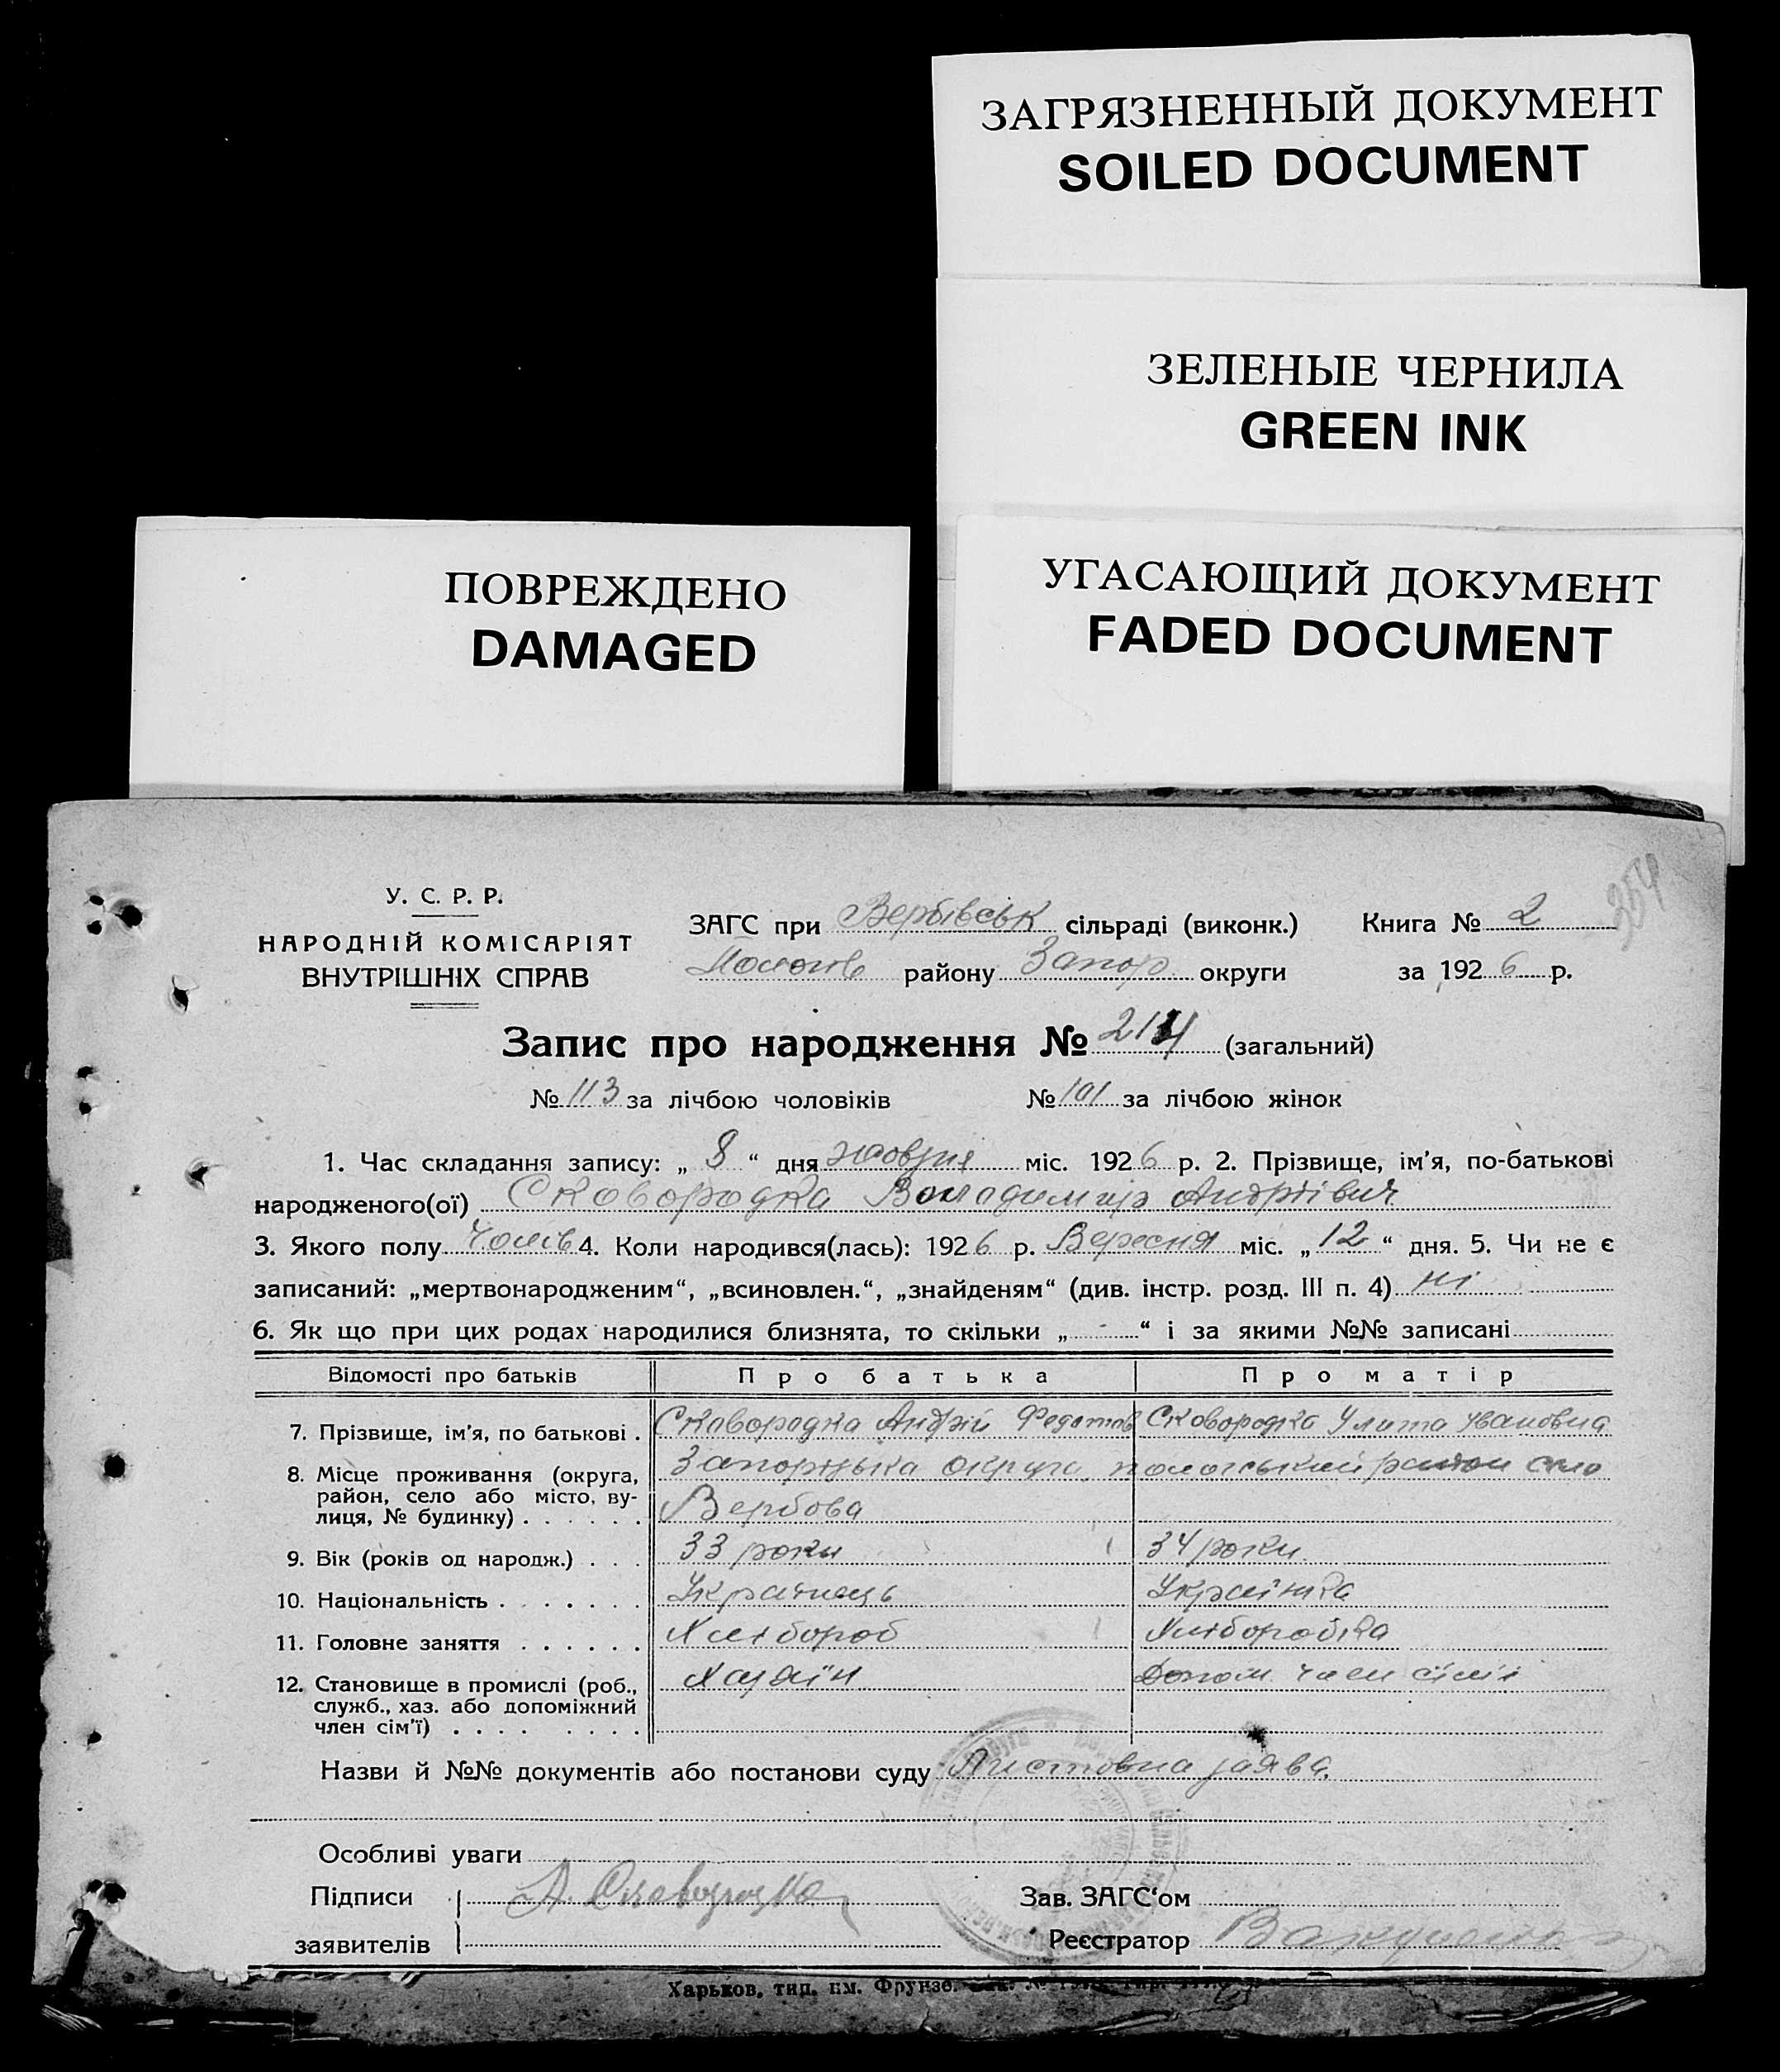 ЗАГРЯЗНЕННЫЙ ДОКУМЕНТ
SOILED DOCUMENT
ЗЕЛЕНЫЕ ЧЕРНИЛА
GREEN INK
ПОВРЕЖДЕНО
DAMAGED
УГАСАЮЩИЙ ДОКУМЕНТ
FADED DOCUMENT
354
У. С. Р. Р.
НАРОДНІЙ КОМІСАРІЯТ
ВНУТРІШНІХ СПРАВ
ЗАГС при Вербівськ сільраді (виконк.) Книга № 2
району Запор округи за 1926 р.
Запис про народження № 214 (загальний)
№ 113 за лічбою чоловіків № 101 за лічбою жінок
1. Час складання запису: „ 8 “ дня жовтня міс. 1926 р. 2. Прізвище, ім’я, по-батькові
народженого(ої) Сковородка Володимир Андріївич
3. Якого полу Чолів 4. Коли народився(лась): 1926 р. Вересня міс. „ 12 “ дня. 5. Чи не є
записаний: „мертвонародженим“, „всиновлен.“, „знайденям“ (див. інстр. розд. III п. 4) ні
6. Як що при цих родах народилися близнята, то скільки „ “ і за якими №№ записані
Відомості про батьків Про батька Про матір
7. Прізвище, ім’я, по батькові . Сковородка Андрій Федотов Сковородка Улита Ивановна
8. Місце проживання (округа, район, село або місто, вулиця, № будинку) . . . . . . Запорізька округа, пологський район село
Вербова
9. Вік (років од народж.) . . . 33 роки 34 роки
10. Національність . . . . . . . Українець Українка
11. Головне заняття . . . . . . Хлібороб Хліборобка
12. Становище в промислі (роб., служб., хаз. або допоміжний член сім’ї) . . . . . . . . Хазяїн Допом. член сімї
Назви й №№ документів або постанови суду Листовна заява.
Особливі уваги
Підписи А. Сковородка Зав. ЗАГС‘ом
заявителів Реєстратор
Харьков, тип. им. Фрунзе.